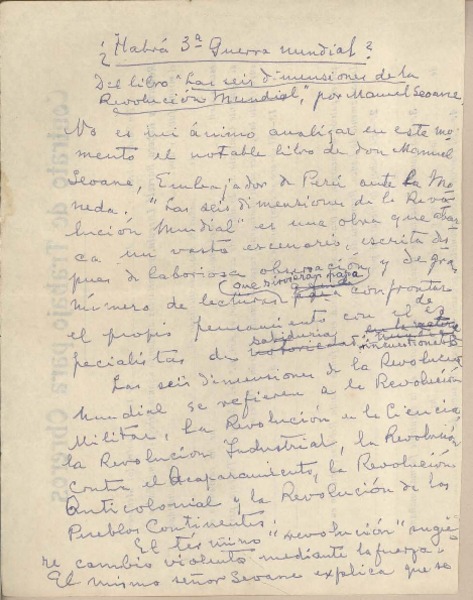 ¿Habrá 3ª Guerra mundial?
Del libro "Las seis dimensiones de la
Revolución Mundial," por Manuel Seoane
No es mi ánimo analizar en este mo-
mento el notable libro de don Manuel
Seoane, Embajador de Perú ante La Mo-
neda. "Las seis dimensiones de la Revo-
lución Mundial" es una obra que abar-
ca un vasto escenario, escrita des-
pues de laboriosa observación y de gran
que sirvieran para
número de lecturas para confrontar
el propio pensamiento con el de es-
pecialistas de sabiduría
incuestionable
Las seis dimensiones de la Revolución
Mundial se refieren a la Revolución
Militar, la Revolución en la Ciencia,
la Revolución Industrial, la Revolución
contra el Acaparamiento, la Revolución
Anticolonial y la Revolución de los
Pueblos Continentes.
El término "revolución" sugie-
re cambio violento mediante la fuerza.
El mismo señor Seoane explica que se
Contrato de Trabajo para Obreros